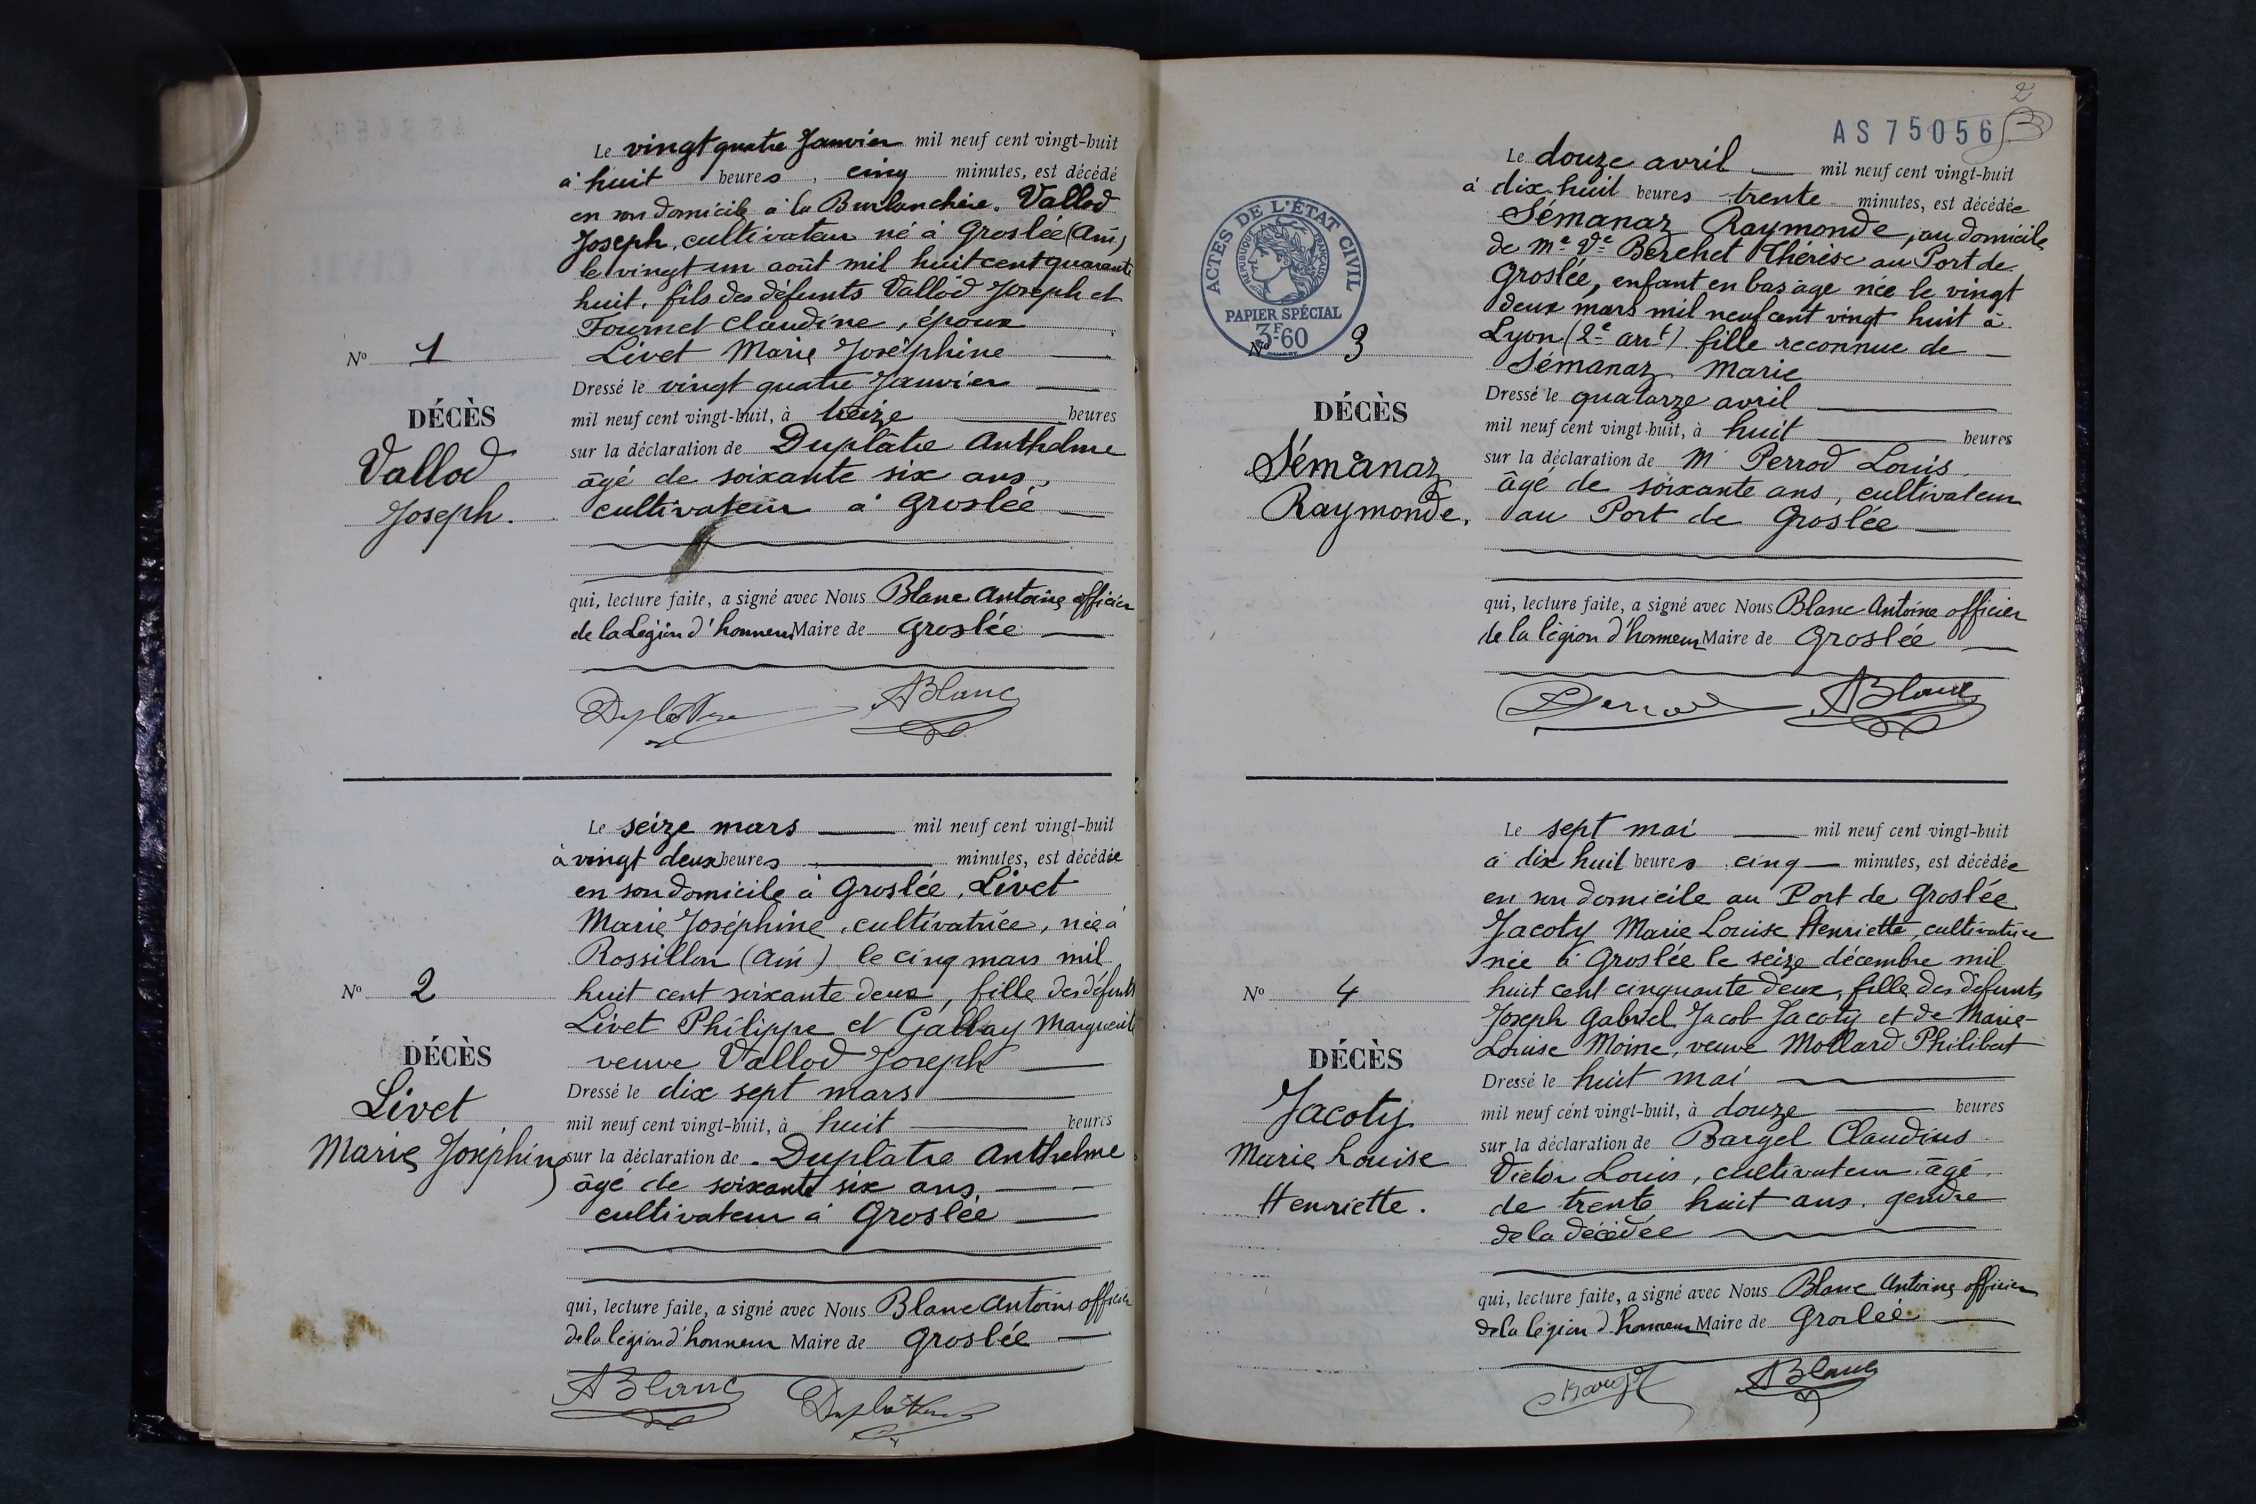 Le vingt quatre Janvier mil neuf cent vingt-huit
à huit heures, cinq minutes, est décédé
en son domicile à la Burlanchère. Vallod
Joseph, cultivateur né à Groslée (Ain)
le vingt un août mil huit cent quarante
huit, fils des défunts Vallod Joseph et
Fournet Claudine, époux
Livet Marie Joséphine
N° 1
DÉCÈS
Vallod
Joseph.
Dressé le vingt quatre Janvier
mil neuf cent vingt-huit, à treize heures
sur la déclaration de Duplâtre Anthelme
âgé de soixante six ans,
cultivateur à Groslée
qui, lecture faite, a signé avec Nous Blanc Antoine officier
de la Légion d'honneur Maire de Groslée
Duplâtre ABlanc
Le seize mars mil neuf cent vingt-huit
à vingt deux heures minutes, est décédée
en son domicile à Groslée, Livet
Marie Joséphine, cultivatrice, née à
Rossillon (Ain) le cinq mars mil
huit cent soixante deux, fille des défunts
Livet Philippe et Gallay Marguerite
veuve Vallod Joseph
N° 2
DÉCÈS
Livet
Marie Joséphine
Dressé le dix sept mars
mil neuf cent vingt-huit, à huit heures
sur la déclaration de Duplâtre Anthelme
âgé de soixante six ans
cultivateur à Groslée
qui, lecture faite, a signé avec Nous Blanc Antoine officier
de la légion d'honneur Maire de Groslée
ABlanc Duplâtre
2
AS 75056
ACTES DE L'ÉTAT CIVIL
RÉPUBLIQUE FRANÇAISE
PAPIER SPÉCIAL
3F60
Le douze avril mil neuf cent vingt-huit
à dix-huit heures trente minutes, est décédée
Sémanaz Raymonde, au domicile
de Me Vve Berchet Thérèse au Port de
Groslée, enfant en bas âge née le vingt
deux mars mil neuf cent vingt huit à
Lyon (2e arrt) fille reconnue de
Sémanaz Marie
N° 3
DÉCÈS
Sémanaz
Raymonde.
Dressé le quatorze avril
mil neuf cent vingt-huit, à huit heures
sur la déclaration de Mr Perrod Louis
âgé de soixante ans, cultivateur
au Port de Groslée
qui, lecture faite, a signé avec Nous Blanc Antoine officier
de la légion d'honneur Maire de Groslée
Perrod ABlanc
Le sept mai mil neuf cent vingt-huit
à dix huit heures cinq minutes, est décédée
en son domicile au Port de Groslée
Jacoty Marie Louise Henriette, cultivatrice
née à Groslée le seize décembre mil
huit cent cinquante deux, fille des défunts
Joseph Gabriel Jacob Jacoty et de Marie-
Louise Moine, veuve Mollard Philibert
N° 4
DÉCÈS
Jacoty
Marie Louise
Henriette.
Dressé le huit mai
mil neuf cent vingt-huit, à douze heures
sur la déclaration de Bargel Claudius
Victor Louis, cultivateur âgé
de trente huit ans, gendre
de la décédée
qui, lecture faite, a signé avec Nous Blanc Antoine officier
de la légion d'honneur Maire de Groslée
Bargel ABlanc